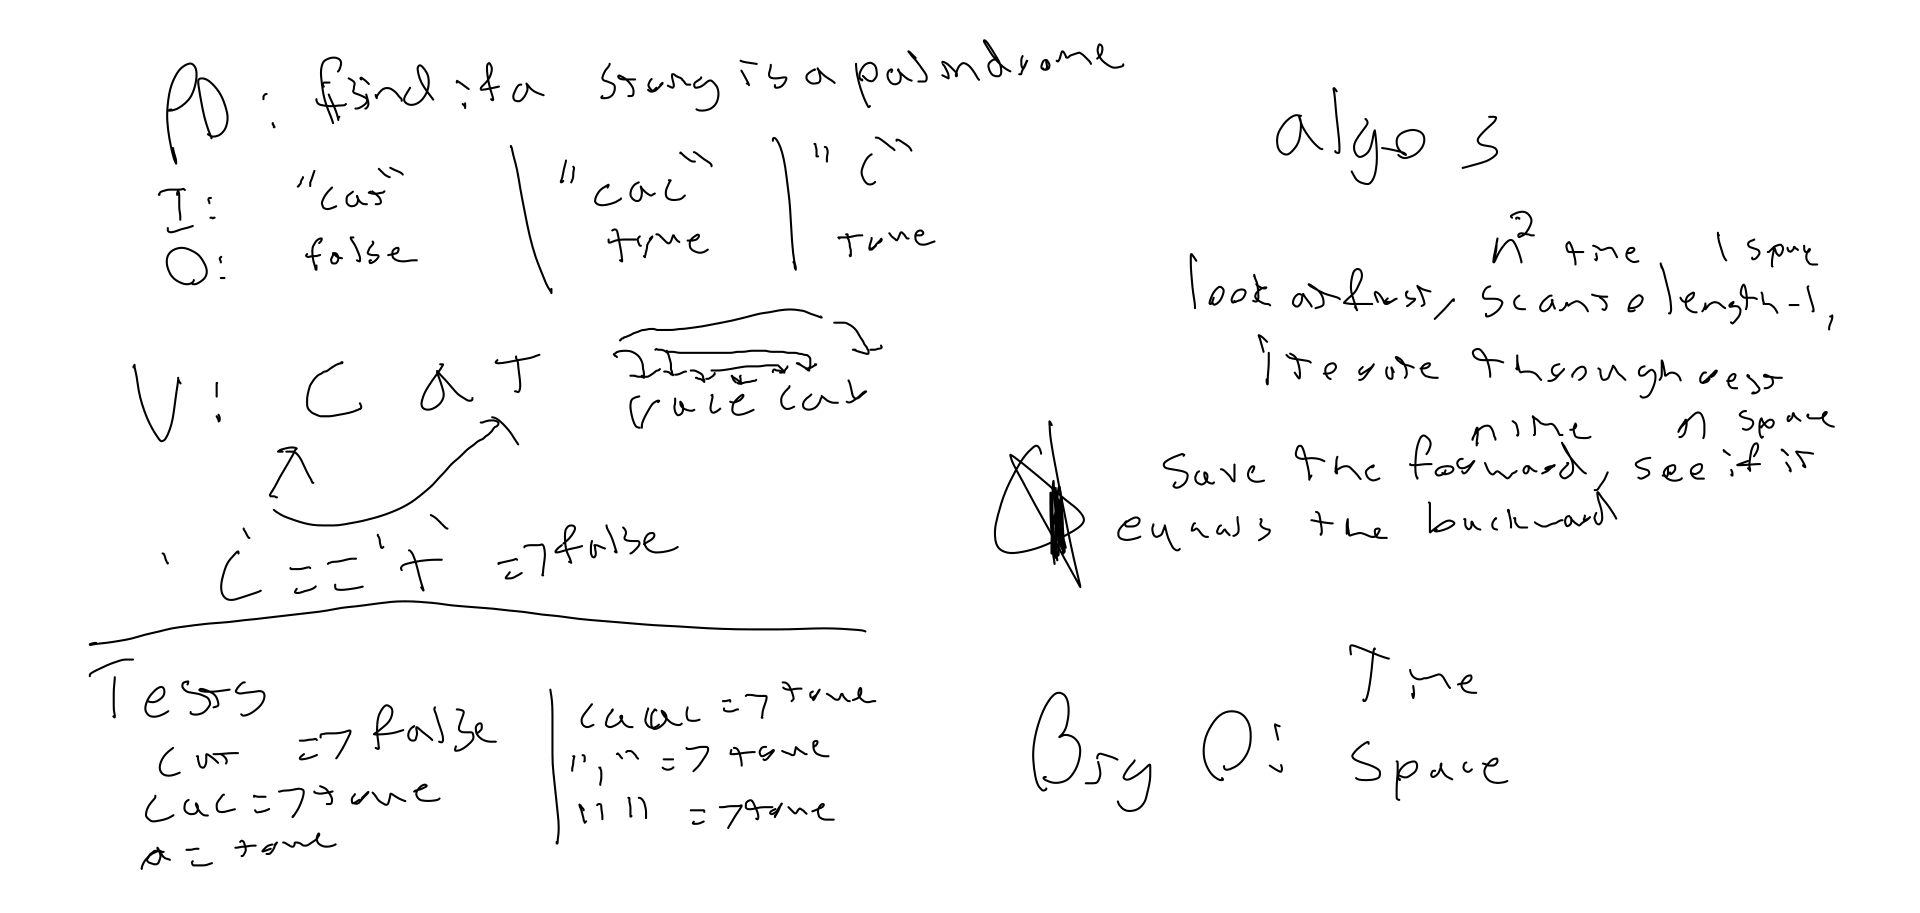 PD: find if a string is a palindrome
I: "cat" | "cac" | "c"
O: false | true | true
V: c a t racecar
'c' == 't' => false
Tests
cat => false
cac => true
a = true
caac => true
"," => true
"" => true
algos
n² time, 1 space
look at first, scan to length-1,
iterate through rest
n time n space
save the forward, see if it
equals the backward
Big O: Time
Space